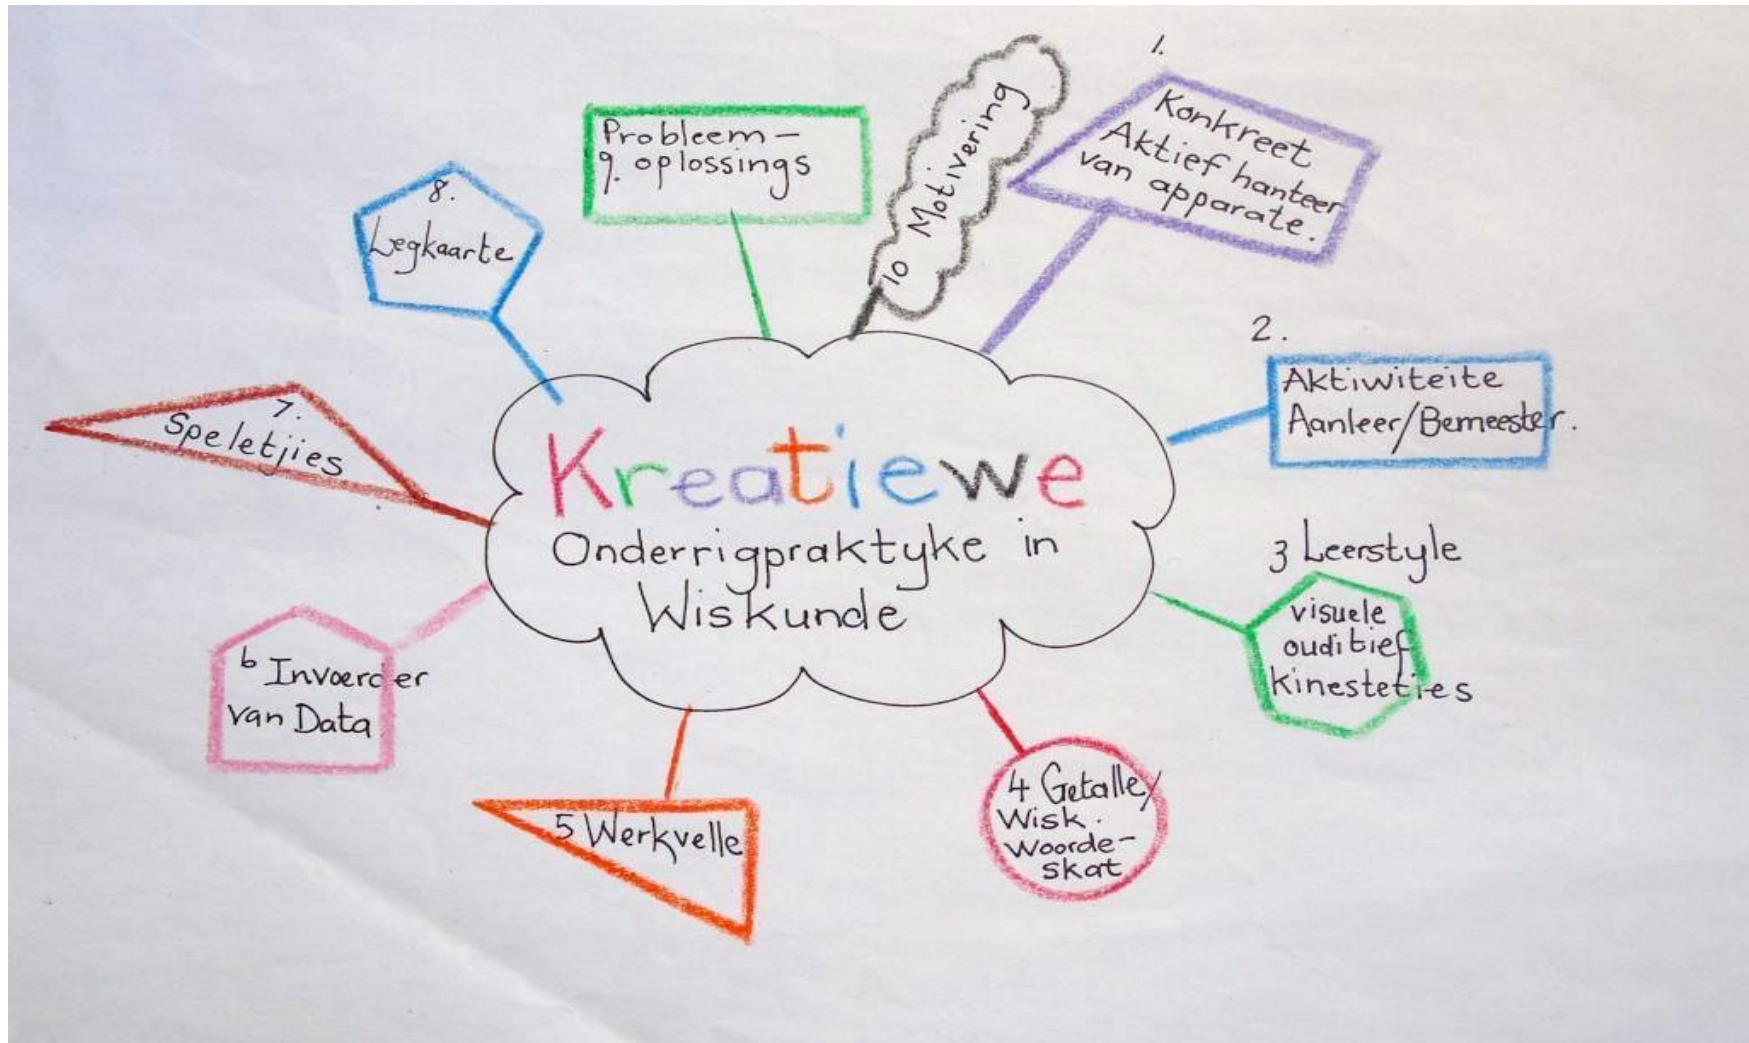 Kreatiewe
Onderrigpraktyke in
Wiskunde
1.
Konkreet
Aktief hanteer
van apparate.
2.
Aktiwiteite
Aanleer/Bemeester.
3 Leerstyle
visuele
ouditief
kinesteties
4 Getalle/
Wisk.
Woorde-
skat
5 Werkvelle
6 Invoerder
van Data
7.
Speletjies
8.
Legkaarte
Probleem-
9. oplossings
10 Motivering